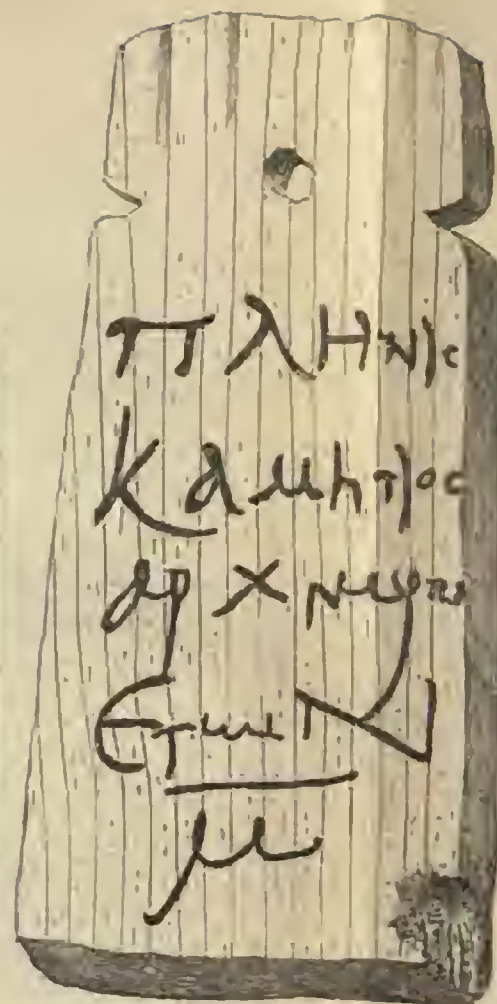 πληνις
Καμητιος
ετωΝ
μ